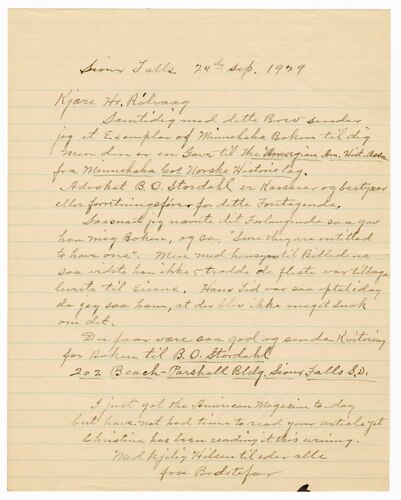 Sioux Falls 24de Sep. 1929
Kjære Hr. Rölvaag
Samtidig med dette Brev sender
jeg et Exemplar af Minnehaha Boken til dig
Men den er en Gave til the Norwegian Am. Hist. Assn
fra Minnehaha Co's Norske Historielag.
Advokat B. O. Stordahl er Kasserer og bestyrer
eller forretningsförer for dette Foretagende.
Saasnart jeg nævnte dit Forlangende saa gav
han mig Boken, og sa, "Sure they are entitled
to have one". Men med hensyn til Billederne
saa vidste han ikke, - trodde de fleste var tilbage
leverte til Eierne. Hans Tid var saa optat idag
da jeg saa ham, at der blev ikke meget Snak
om det.
Du faar være saa god og sende Kvitering
for Boken til B. O. Stordahl
202 Beach-Parshall Bldg. Sioux Falls S.D.
I just got the American Magasine to-day
but have not had time to read your article yet
Christine has been reading it this evening.
Med kjerlig Hilsen til eder alle
fra Bedstefar